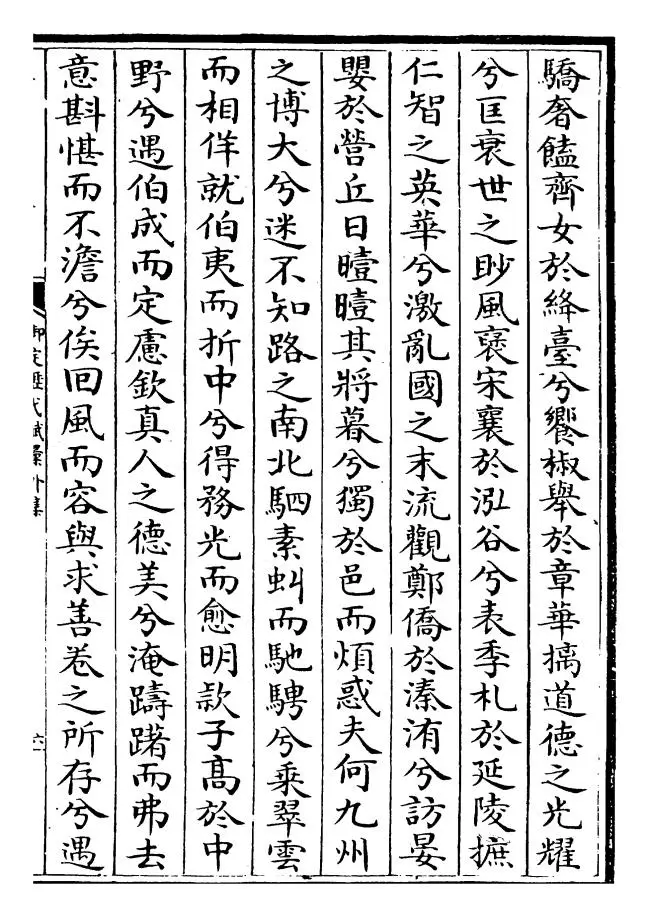 驕奢饁齊女於絳臺兮饗椒舉於章華摛道德之光耀
兮匡衰世之眇風褒宋襄於泓谷兮表季札於延陵摭
仁智之英華兮激亂國之末流觀鄭僑於溱洧兮訪晏
嬰於營丘日曀曀其將暮兮獨於邑而煩惑夫何九州
之博大兮迷不知路之南北駟素虯而馳騁兮乘翠雲
而相佯就伯夷而折中兮得務光而愈明款子高於中
野兮遇伯成而定慮欽真人之德美兮淹躊躇而弗去
意斟愖而不澹兮俟回風而容與求善卷之所存兮遇
御定歷代賦彙外集
六